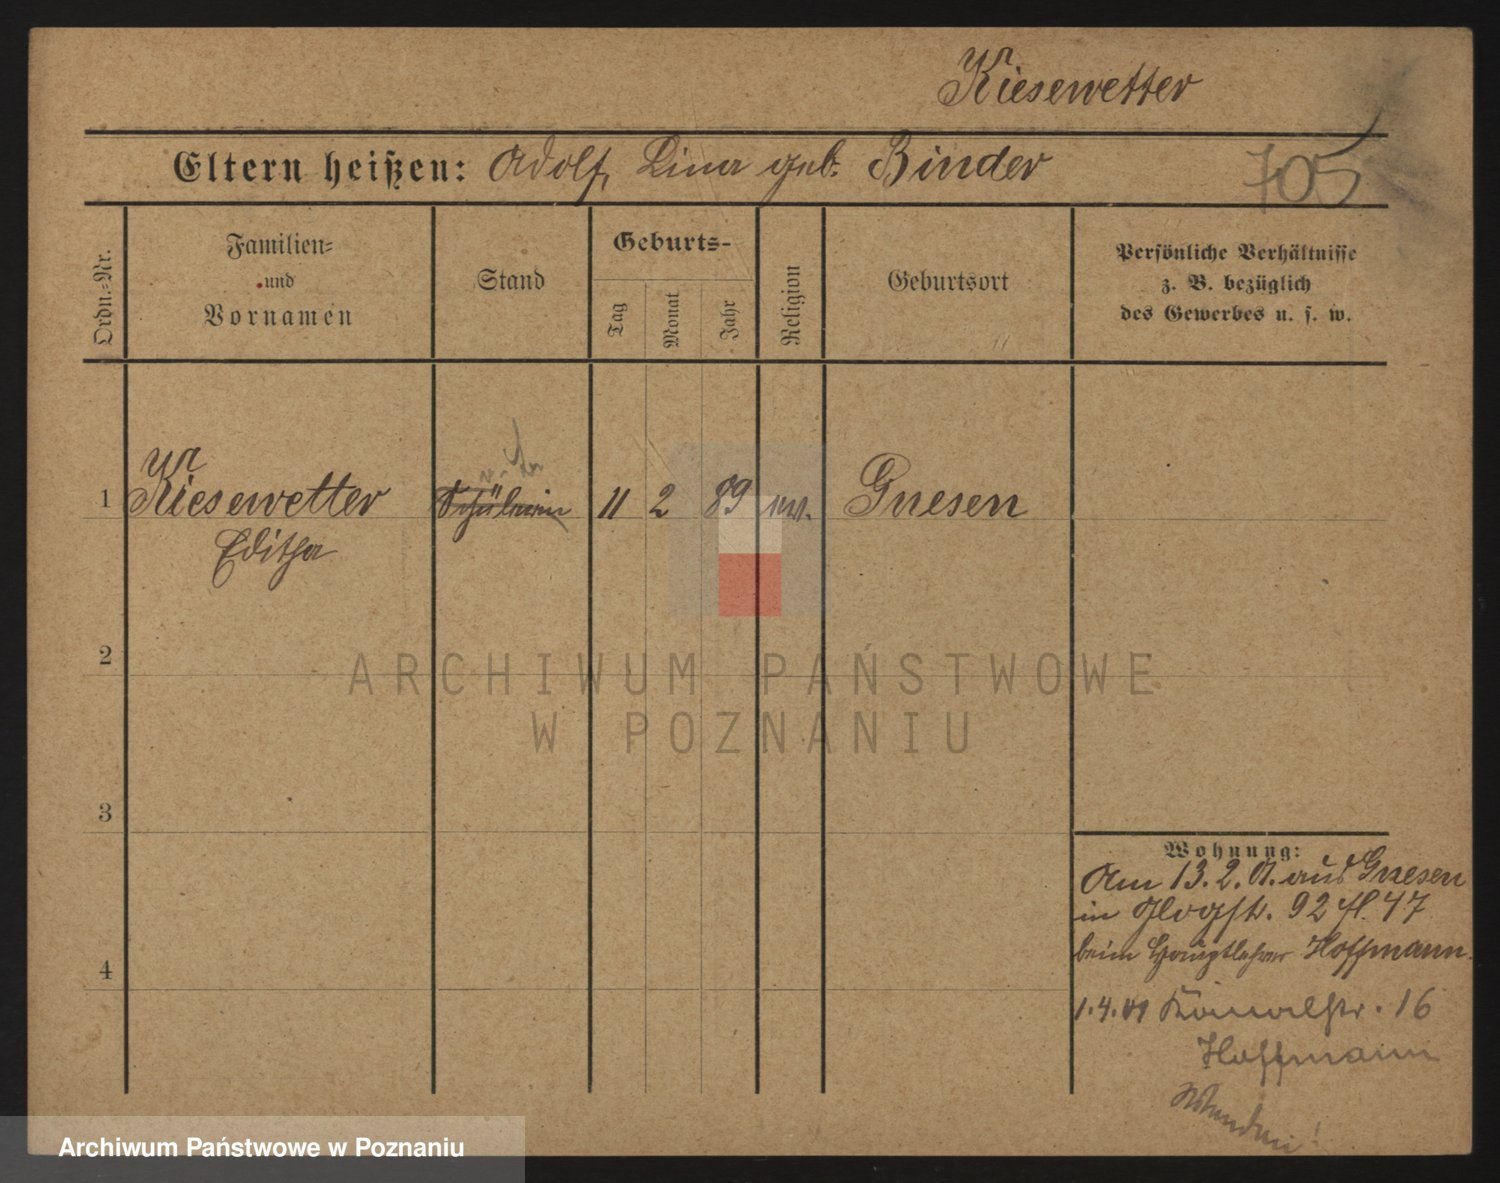 Kiesewetter
Eltern heißen: Adolf, Lina geb. Binder
705
Ordn.-Nr.
Familien-
und
Vornamen
Stand
Geburts-
Tag
Monat
Jahr
Religion
Geburtsort
Persönliche Verhältnisse
z. B. bezüglich
des Gewerbes u. s. w.
1 Kiesewetter Schülerin 11 2 89 Gnesen
Editha
2
ARCHIWUM PAŃSTWOWE
W POZNANIU
3
Wohnung:
Am 13.2.01. aus Gnesen
in Glogstr. 92
beim Hauptlehrer Hoffmann.
1.4.01 Kanalstr. 16
Hoffmann
4
Archiwum Państwowe w Poznaniu